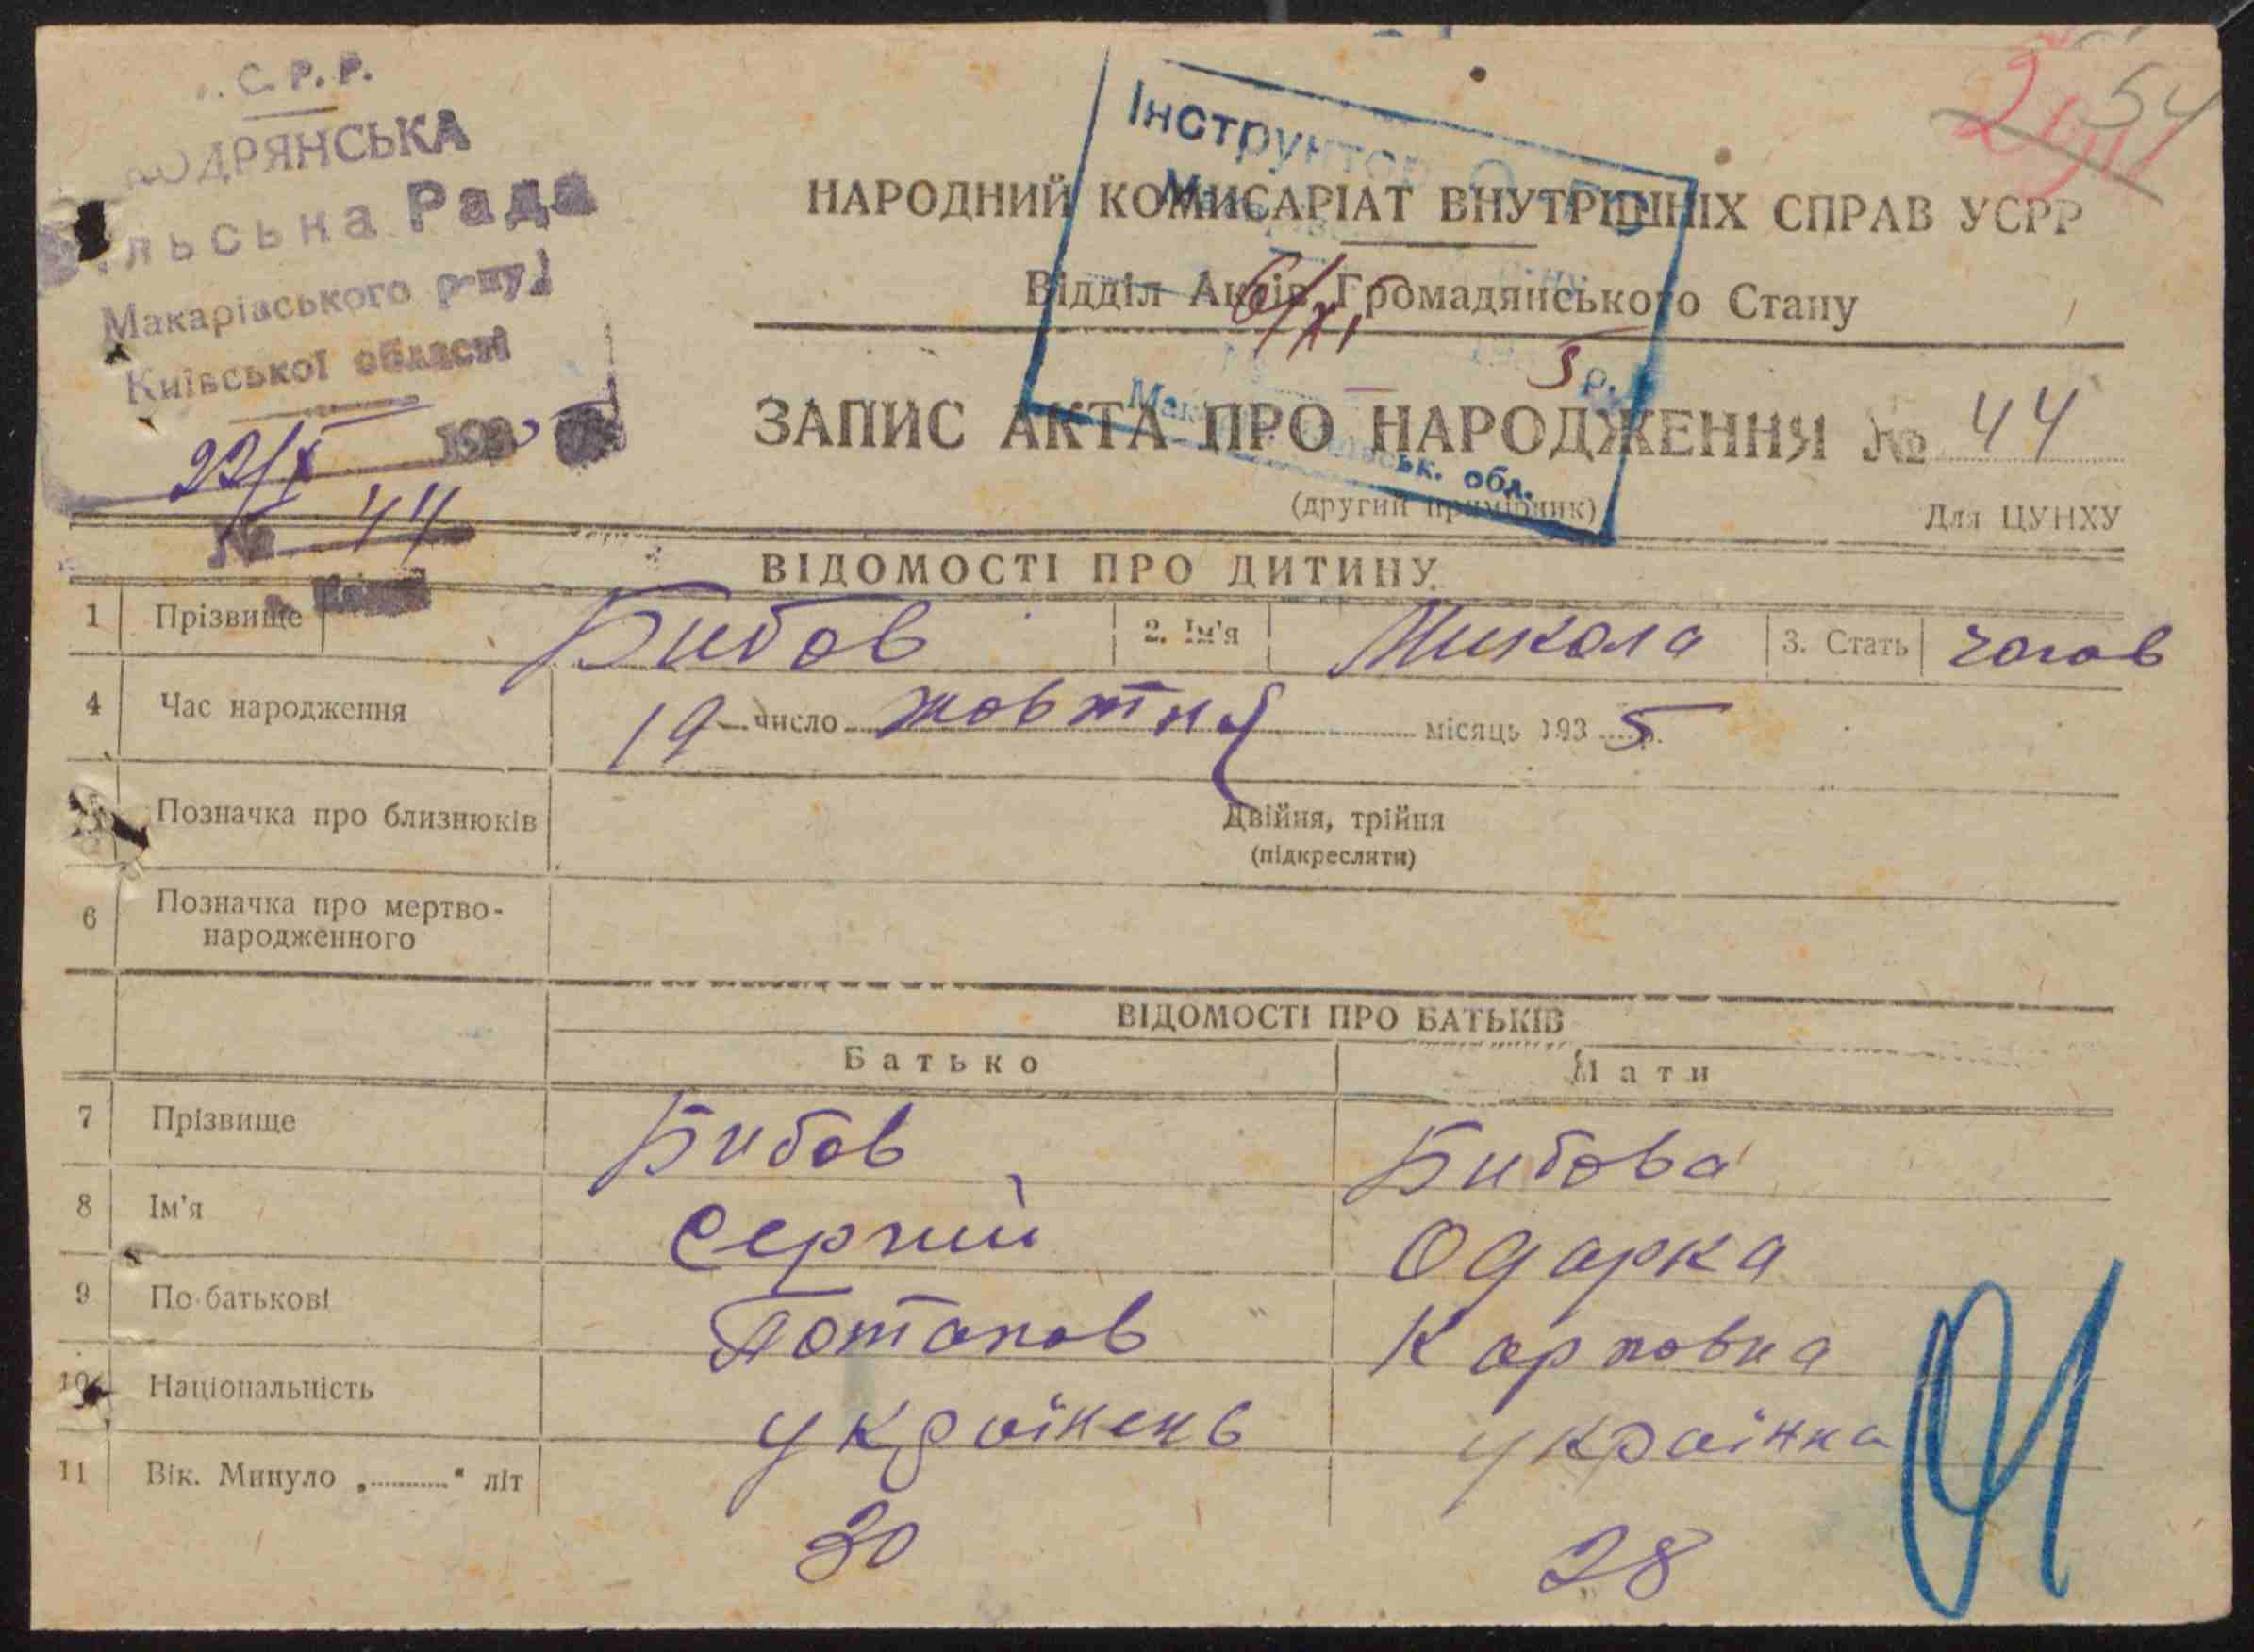 С.Р.Р.
ОДРЯНСЬКА
ільська Рада
Макарівського р-ну
Київської області
22/X 193
№ 44
54
Інструктор
НАРОДНИЙ КОМИСАРІАТ ВНУТРІШНІХ СПРАВ УСРР
Відділ Актів Громадянського Стану
6/XI 5 р.
ЗАПИС АКТА ПРО НАРОДЖЕННЯ № 44
ськ. обл.
(другий примірник)
Для ЦУНХУ
ВІДОМОСТІ ПРО ДИТИНУ
1 Прізвище Бибов 2. Ім'я Микола 3. Стать чолов
4 Час народження 19 число жовтня місяць 1935 р.
5 Позначка про близнюків Двійня, трійня
(підкреслити)
6 Позначка про мертво-
народженного
ВІДОМОСТІ ПРО БАТЬКІВ
Батько Мати
7 Прізвище Бибов Бибова
8 Ім'я Сергий Одарка
9 По-батькові Потапов Карповна
10 Національність українець українка
11 Вік. Минуло „..........“ літ 30 28